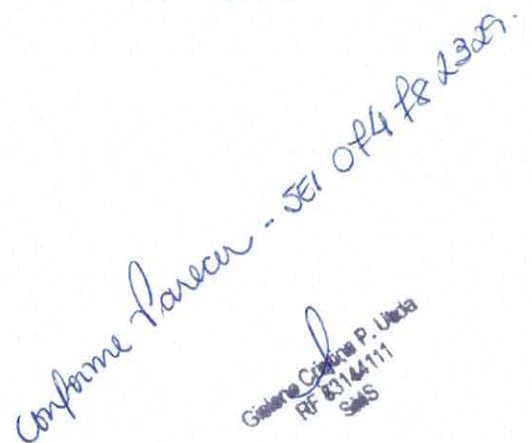 Conforme Parecer - SEI 074782329.
Cristina P. Ueda
RF 83144111
SMS